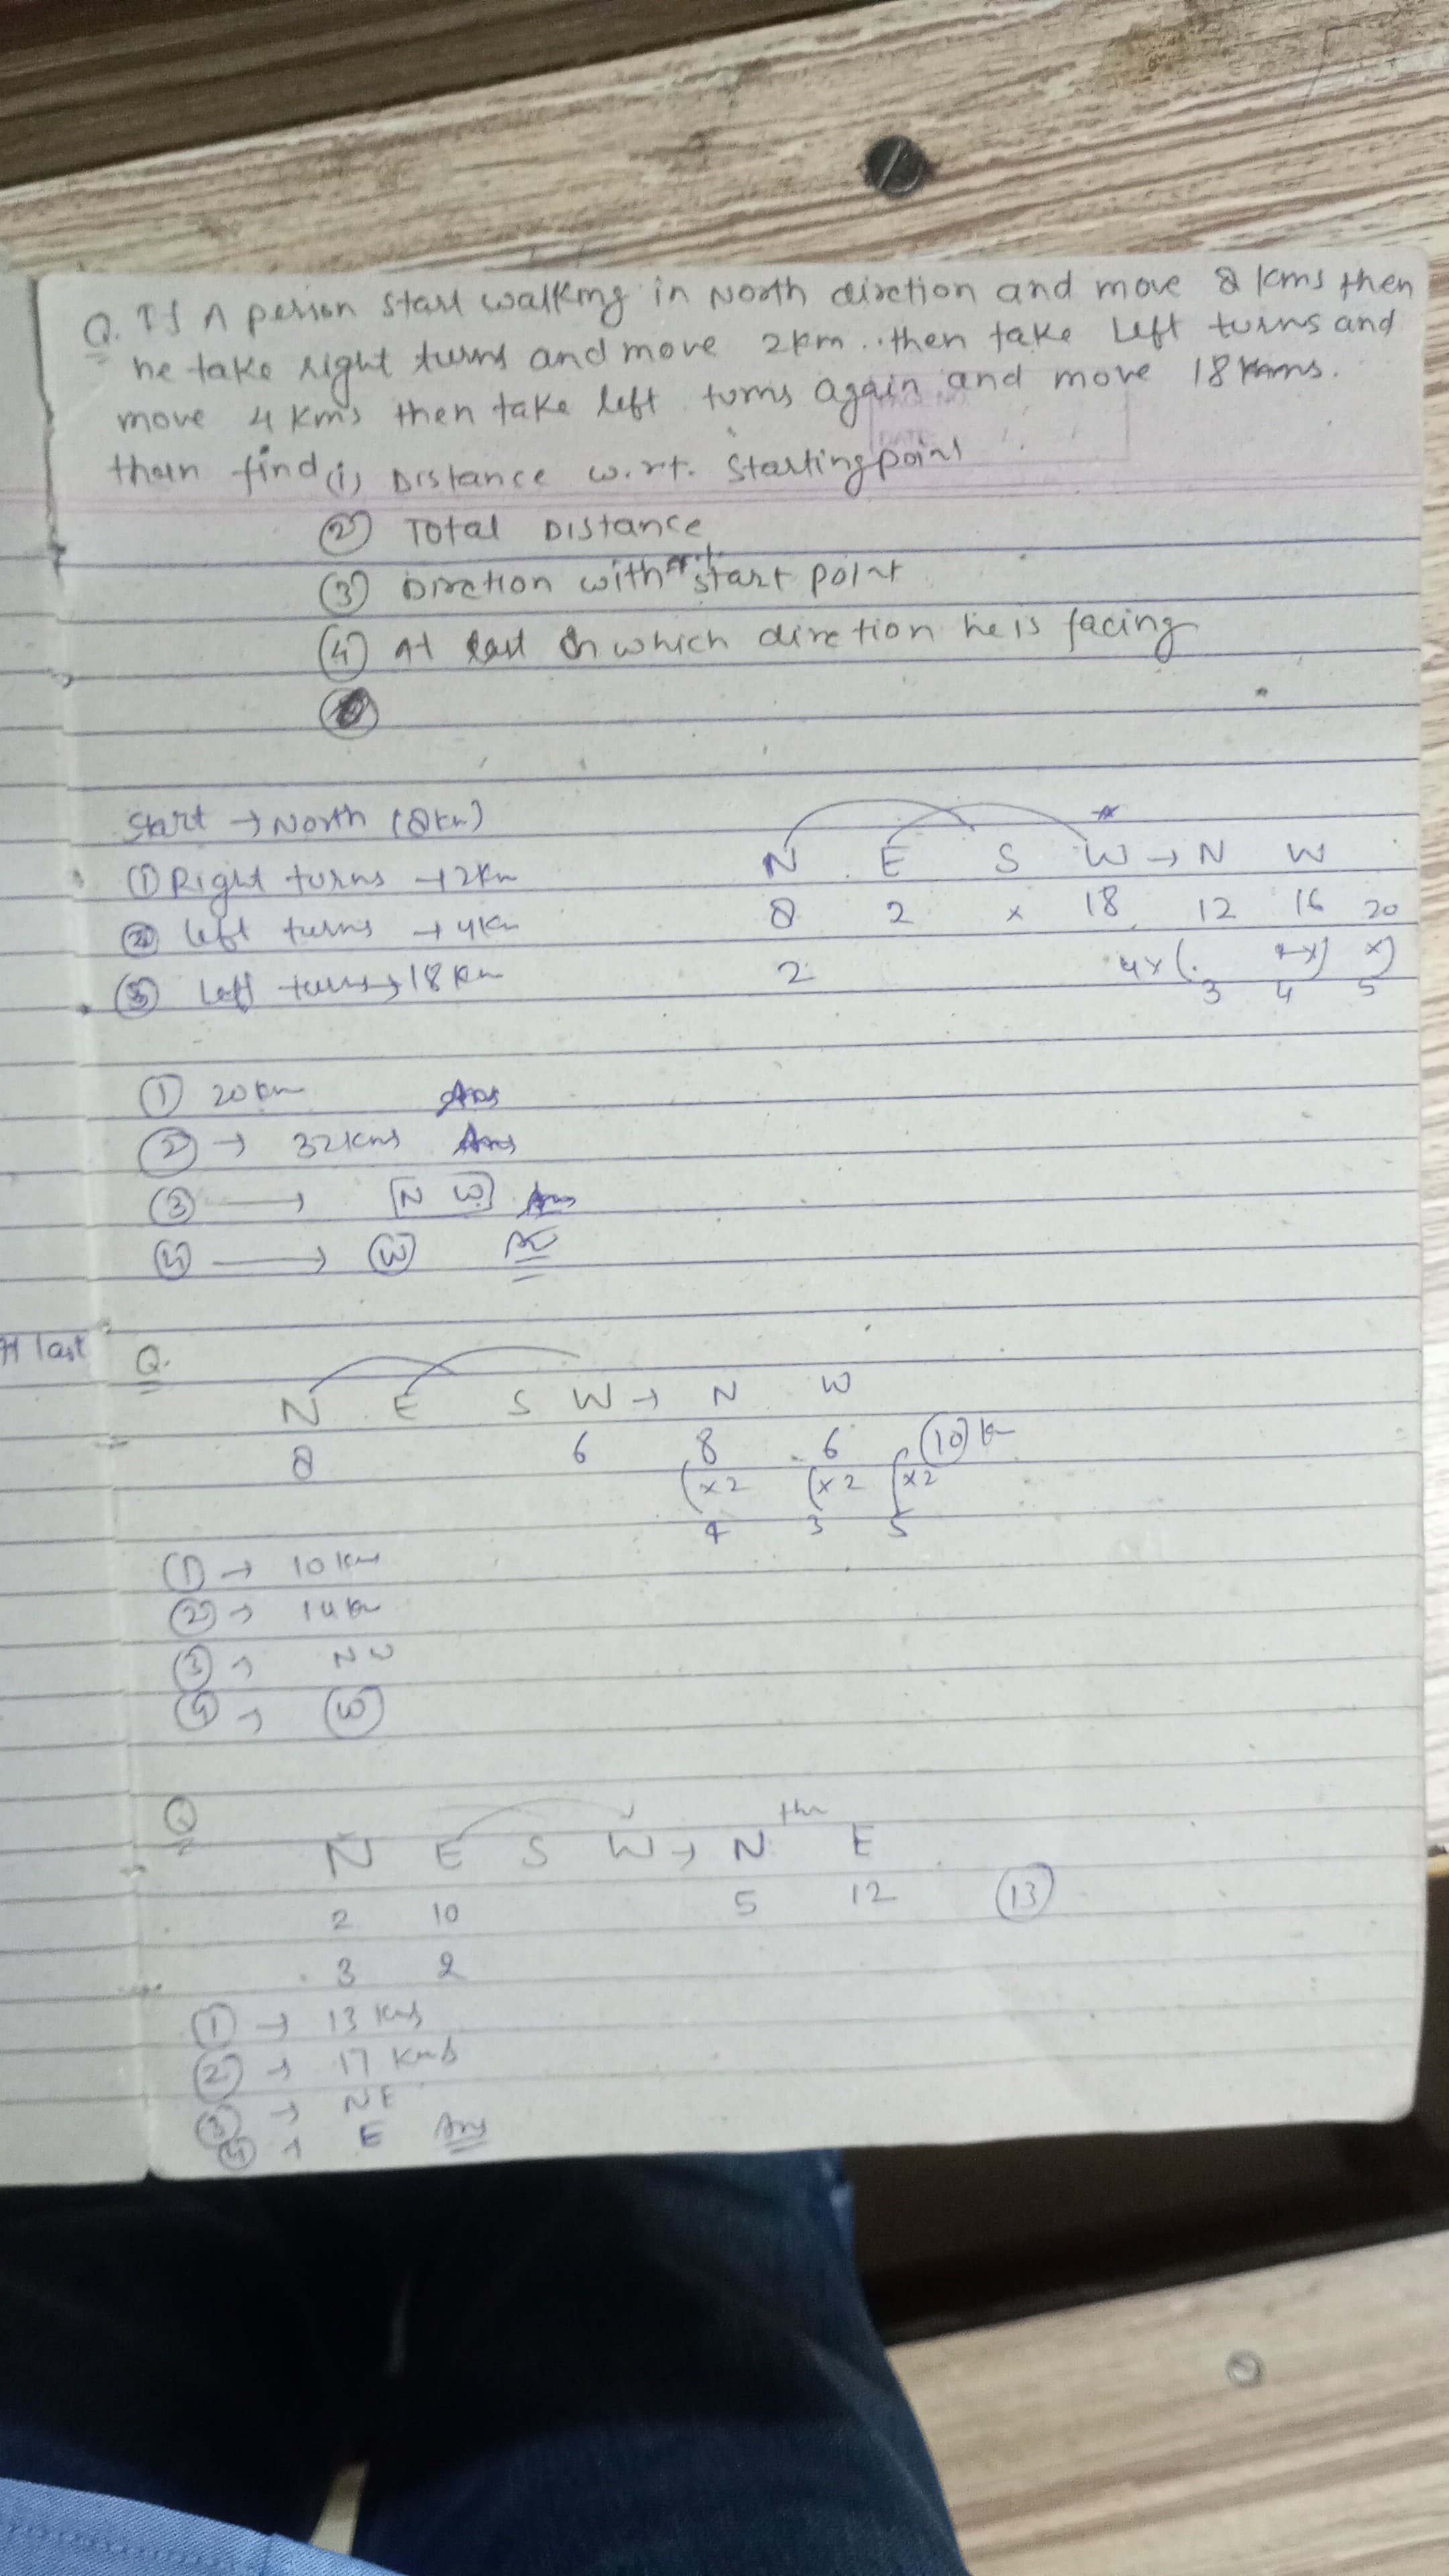 Q. If A person start walking in North dirction and move 8 kms then
he take right turns and move 2km.. then take Left turns and
move 4 kms then take left turns again and move 18 kms.
then find (1) Distance w.r.t. Starting point
(2) Total Distance
(3) Dirction with start point
(4) At last which direction he is facing
Start → North (8km)
(1) Right turns → 2km
left turns → 4km
(3) Left turns → 18 km
N E S W → N W
8 2 × 18 12 16 20
2 4× 3 4 5
(1) 20 km Ans
(2) → 32 kms Ans
(3) → N W Ans
(4) → W
At last
Q.
N E S W → N W
8 6 8 6 10 km
(×2 (×2 (×2
4 3 5
(1) → 10 km
(2) → 14 km
(3) → NW
(4) → W
Q
N E S W → N E
2 10 5 12 13
3 2
(1) → 13 kms
(2) → 17 kms
(3) → NE
(4) → E Ans